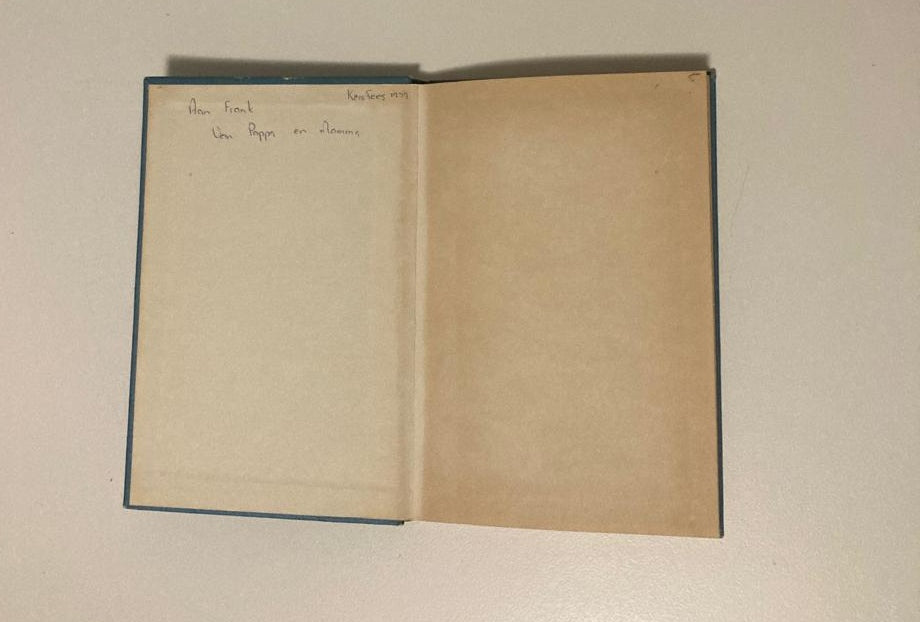 Kersfees 1979
Aan Frank
Van Pappa en Mamma